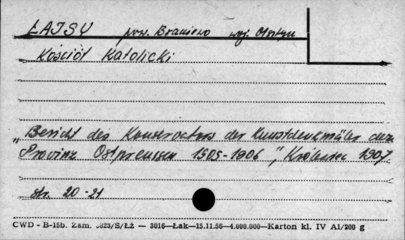 ŁAJSY pow. Braniewo woj. Olsztyn
Kościół Katolicki
„Bericht des Konservators der Kunstdenkmäler der
Provinz Ostpreussen 1905-1906", Królewiec 1907
str. 20-21
CWD - B-15b. Zam. 3823/S/ŁŻ — 3016—Łak—15.11.56—4.000.000—Karton kl. IV A1/200 g